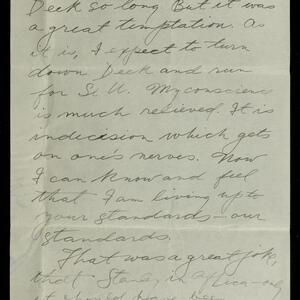 Deck so long. But it was
a great temptation. As
it is, I expect to turn
down Deck and run
for St. U. My conscience
is much relieved. It is
indecision which gets
on one's nerves. Now
I can know and feel
that I am living up to
your standards - our
standards.
That was a great joke,
that Stanley in Africa - only
it should have been